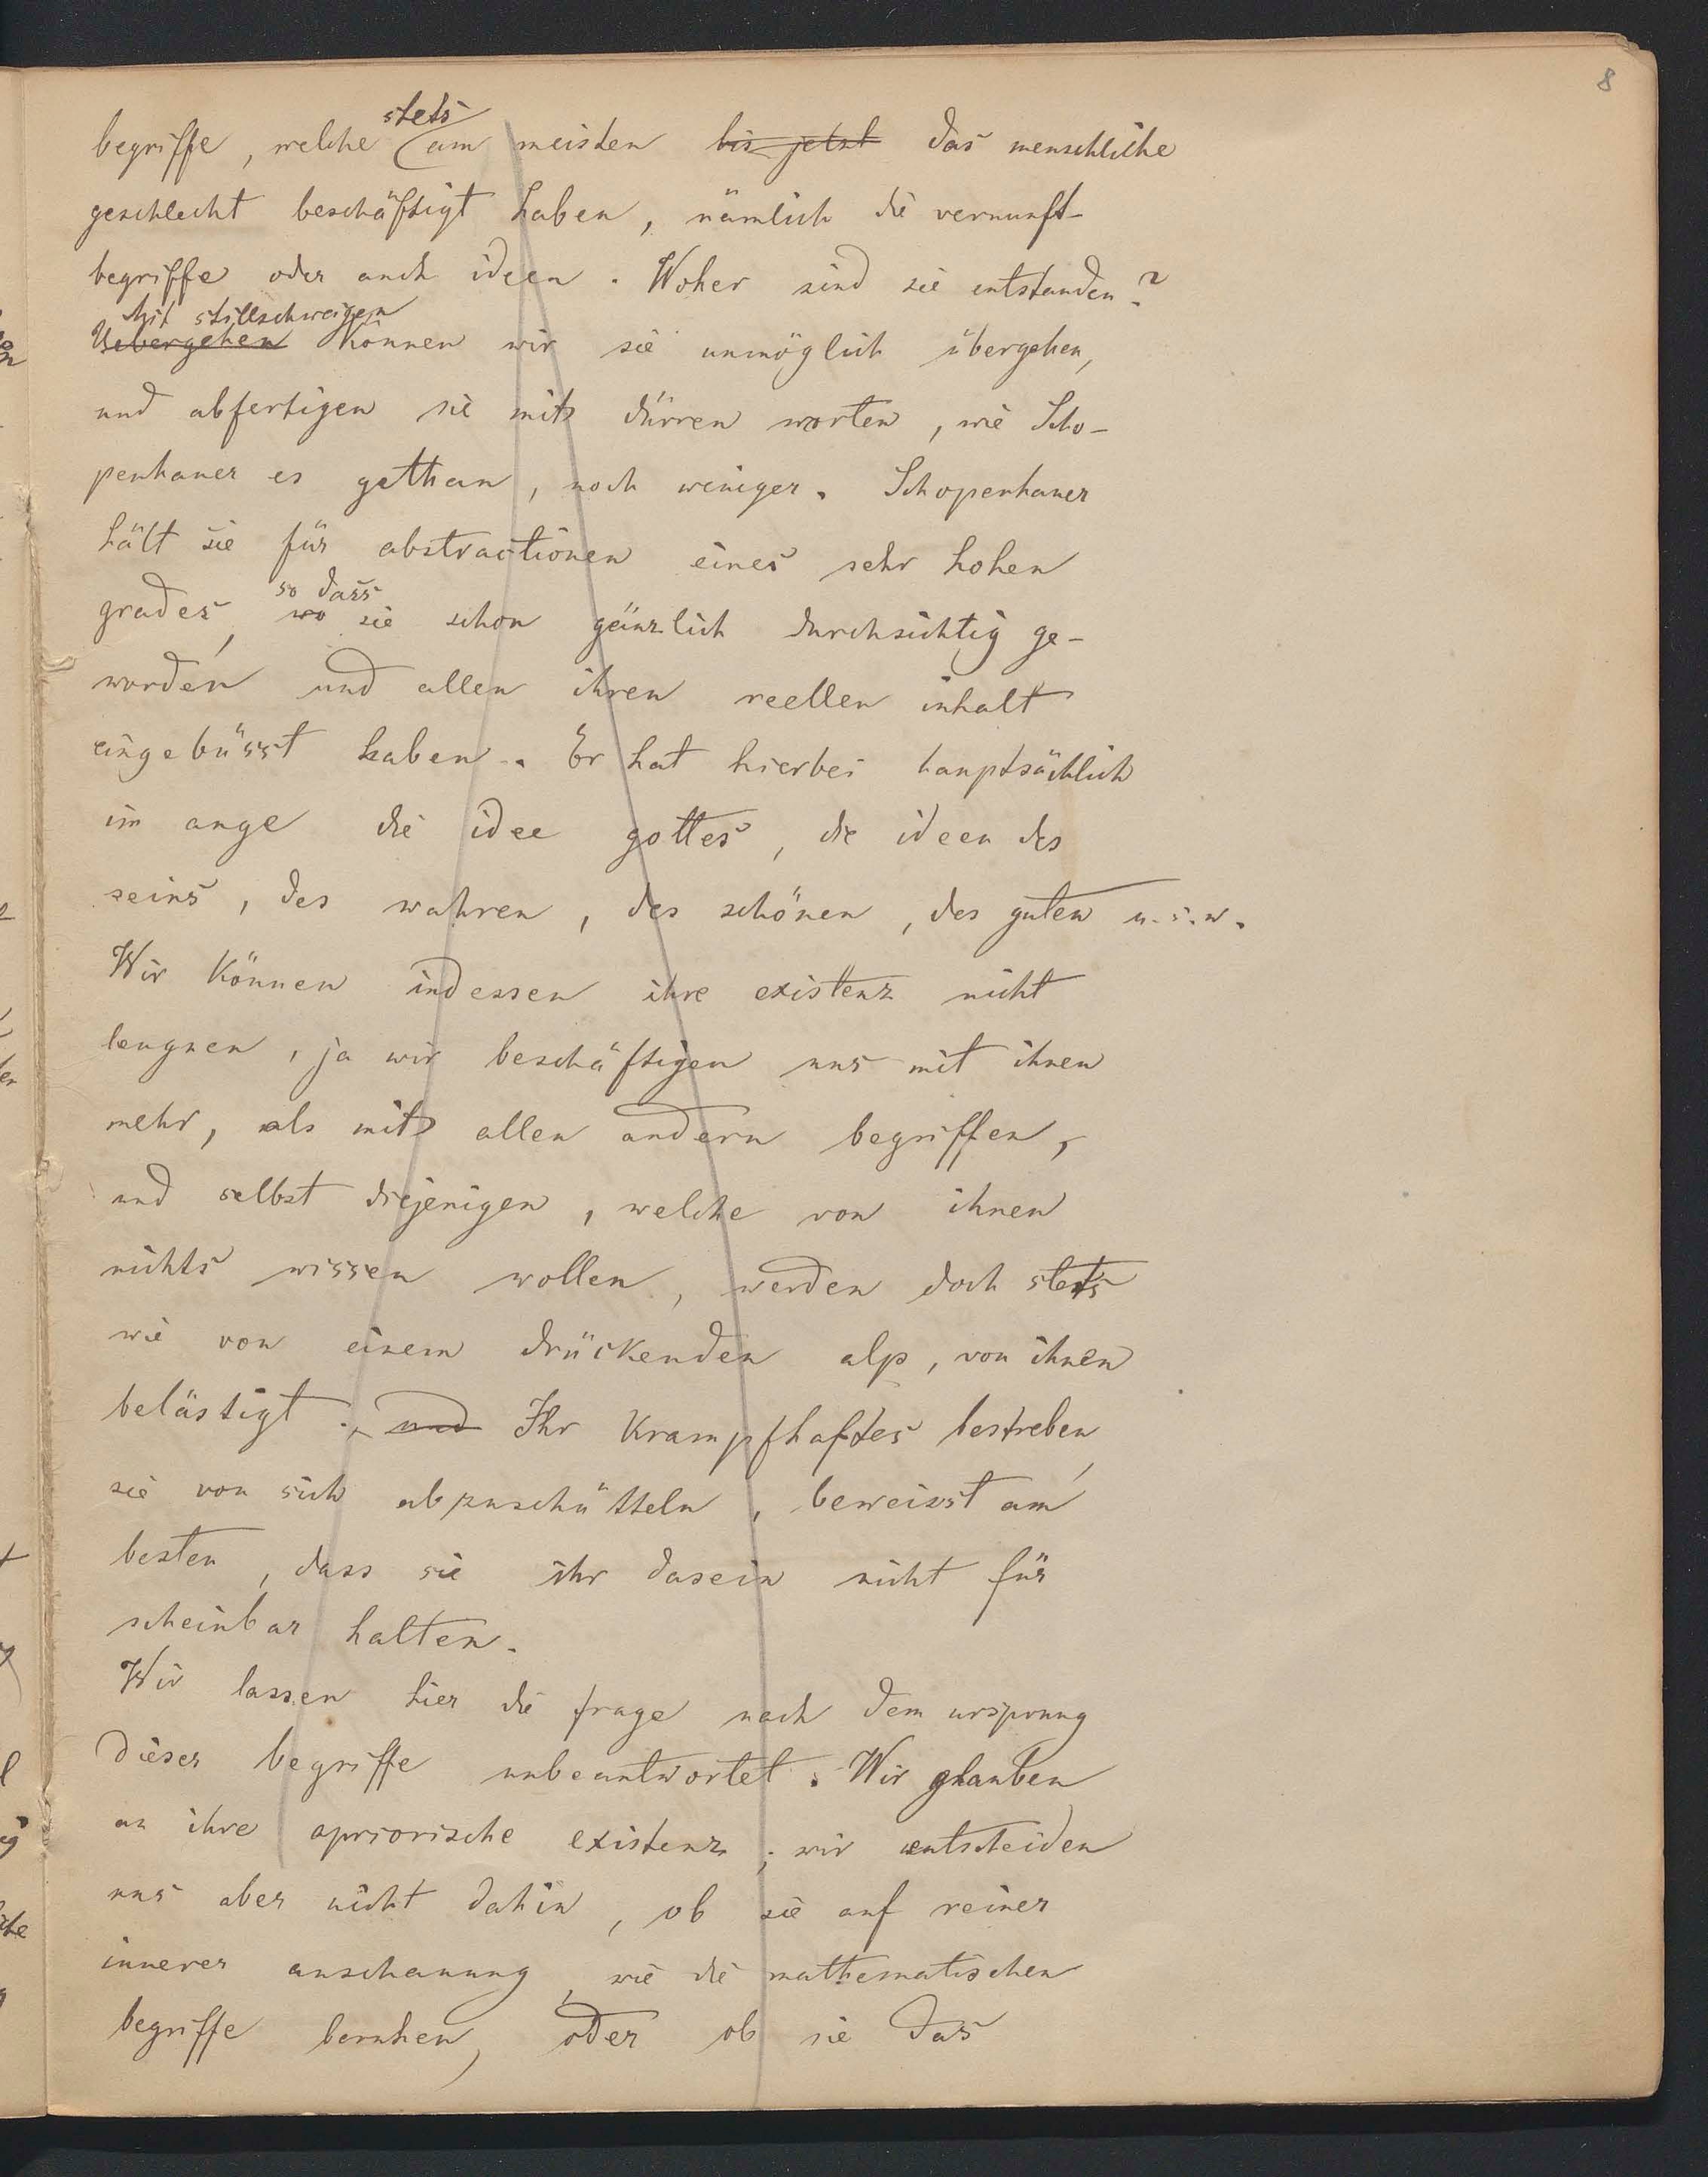 8
stets
begriffe, welche am meisten bis jetzt das menschliche
geschlecht beschäftigt haben, nämlich die vernunft-
begriffe oder auch ideen. Woher sind sie entstanden?
Mit stillschweigen
Uebergehen können wir sie unmöglich übergehen,
und abfertigen sie mit dürren worten, wie Scho-
penhauer es gethan, noch weniger. Schopenhauer
hält sie für abstractionen eines sehr hohen
so dass
grades, wo sie schon gänzlich durchsichtig ge-
worden und allen ihren reellen inhalt
eingebüsst haben. Er hat hierbei hauptsächlich
im auge die idee gottes, die ideen des
seins, des wahren, des schönen, des guten u.s.w.
Wir können indessen ihre existenz nicht
leugnen, ja wir beschäftigen uns mit ihnen
mehr, als mit allen andern begriffen,
und selbst diejenigen, welche von ihnen
nichts wissen wollen, werden doch stets
wie von einem drückenden alp, von ihnen
belästigt. und Ihr krampfhaftes bestreben,
sie von sich abzuschütteln, beweisst am
besten, dass sie ihr dasein nicht für
scheinbar halten.
Wir lassen hier die frage nach dem ursprung
dieser begriffe unbeantwortet. Wir glauben
an ihre apriorische existenz; wir entscheiden
uns aber nicht dahin, ob sie auf reiner
innerer anschauung, wie die mathematischen
begriffe beruhen, oder ob sie das